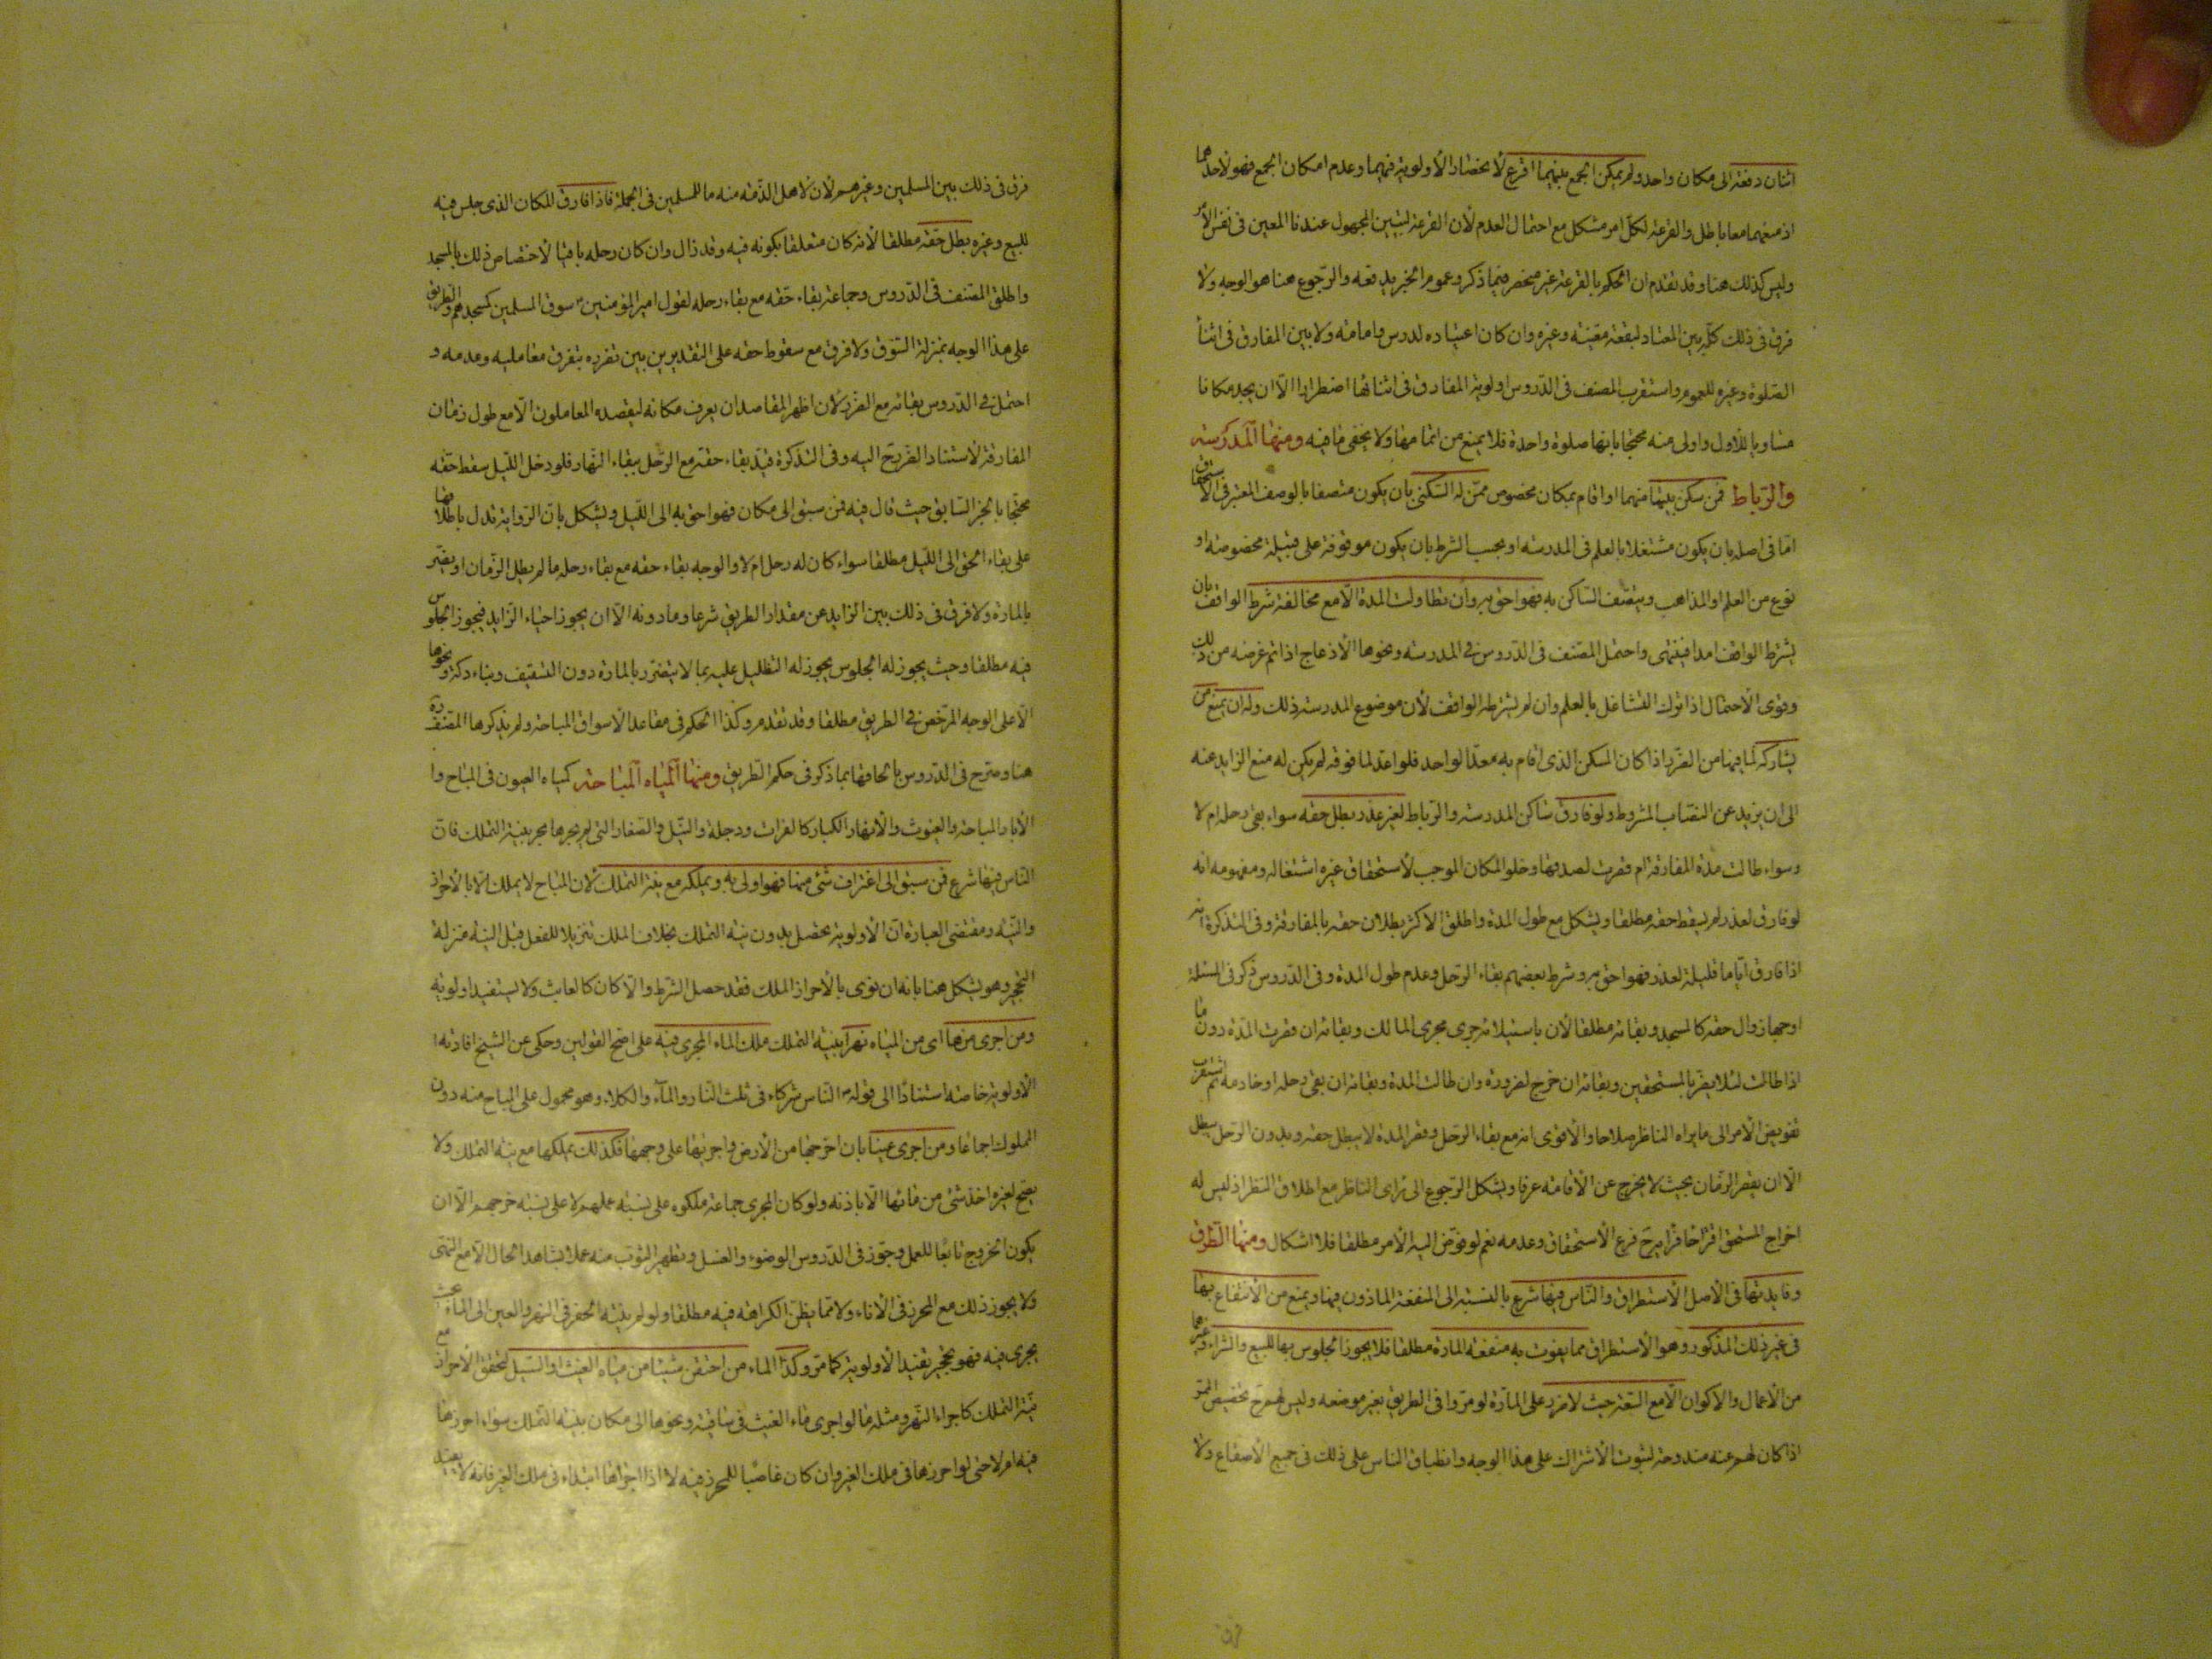 اثنان دفعة الى مكان واحد ولم يمكن الجمع بينهما اقرع لانحصار الاولوية فيهما وعدم امكان الجمع فهو لاحدهما
اذ منعهما معا باطل والقرعة لكل امر مشكل مع احتمال العدم لان القرعة لتبين المجهول عندنا المعين فى نفس الامر
وليس كذلك هنا وقد تقدم ان الحكم بالقرعة غير منحصر فيما ذكر وعموم الخبر يدفعه والرجوع هنا هو الوجه ولا
فرق فى ذلك كله بين المعتاد لبقعة معينة وغيره وان كان اعتياده لدرس وامامة ولا بين المفارق فى اثناء
الصلوة وغيره للعموم واستقرب المصنف فى الدروس اولوية المفارق فى اثنائها اضطرارا الا ان يجد مكانا
مساويا للاول واولى منه محتجا بانها صلوة واحدة فلا يمنع من اتمامها ولا يخفى ما فيه ومنها المدرسة
والرباط فمن سكن بيتا منهما او اقام بمكان مخصوص ممن له السكنى بان يكون متصفا بالوصف المعتبر فى الاستحقاق
اما فى اصله بان يكون مشتغلا بالعلم فى المدرسة او بحسب الشرط بان يكون موقوفة على قبيلة مخصوصة او
نوع من العلم او المذاهب ويتصف الساكن به فهو احق به وان تطاولت المدة الا مع مخالفة شرط الواقف بان
يشرط الواقف امدا فينتهى واحتمل المصنف فى الدروس فى المدرسة ونحوها الازعاج اذا تم غرضه من ذلك
وقوى الاحتمال اذا ترك التشاغل بالعلم وان لم يشرطه الواقف لان موضوع المدرسة ذلك وله ان يمنع من
يشاركه لما فيها من الضرر اذا كان المسكن الذى اقام به معدا لواحد فلو اعد لما فوقه لم يكن له منع الزايد عنه
الى ان يزيد عن النصاب المشروط ولو فارق ساكن المدرسة والرباط لغير عذر بطل حقه سواء بقى رحله ام لا
وسواء طالت مدة المفارقة ام قصرت لصدقها وخلو المكان الموجب لاستحقاق غيره اشتغاله ومفهومه انه
لو فارق لعذر لم يسقط حقه مطلقا ويشكل مع طول المدة واطلق الاكثر بطلان حقه بالمفارقة وفى التذكرة انه
اذا فارق اياما قليلة لعذر فهو احق به وشرط بعضهم بقاء الرحل وعدم طول المدة وفى الدروس ذكر فى المسئلة
اوجها زوال حقه كالمسجد وبقائه مطلقا لان باستيلائه جرى مجرى المالك وبقائه ان قصرت المدة دون ما
اذا طالت لئلا يضر بالمستحقين وبقائه ان خرج لضرورة وان طالت المدة وبقائه ان بقى رحله او خادمه ثم استقرب
تفويض الامر الى ما يراه الناظر صلاحا والاقوى انه مع بقاء الرحل وقصر المدة لا يبطل حقه وبدون الرحل يبطل
الا ان يقصر الزمان بحيث لا يخرج عن الاقامة عرفا ويشكل الرجوع الى راى الناظر مع اطلاق النظر اذ ليس له
اخراج المستحق اقتراحا فرايه رح فرع الاستحقاق وعدمه نعم لو فوض اليه الامر مطلقا فلا اشكال ومنها الطرق
وفايدتها فى الاصل الاستطراق والناس فيها شرع بالنسبة الى المنفعة الماذون فيها ويمنع من الانتفاع بها
فى غير ذلك المذكور وهو الاستطراق مما يفوت به منفعة المارة مطلقا فلا يجوز الجلوس بها للبيع والشراء وغيرهما
من الاعمال والاكوان الا مع السعة حيث لا ضرر على المارة لو مروا فى الطريق بغير موضعه وليس لهم رح تخصيص الممر
اذا كان لهم عنه مندوحة لثبوت الاشتراك على هذا الوجه وانطباق الناس على ذلك فى جميع الاصقاع ولا
فرق فى ذلك بين المسلمين وغيرهم لان لاهل الذمة منه ما للمسلمين فى الجملة فاذا فارق المكان الذى جلس فيه
للبيع وغيره بطل حقه مطلقا لانه كان متعلقا بكونه فيه وقد زال وان كان رحله باقيا لاختصاص ذلك بالمسجد
واطلق المصنف فى الدروس وجماعة بقاء حقه مع بقاء رحله لقول امير المؤمنين ع سوق المسلمين كمسجدهم والطريق
على هذا الوجه بمنزلة السوق ولا فرق مع سقوط حقه على التقديرين بين تضرره بتفرق معامليه وعدمه و
احتمل فى الدروس بقائه مع الضرر لان اظهر المقاصد ان يعرف مكانه ليقصده المعاملون الا مع طول زمان
المفارقة لاستناد الضرر رح اليه وفى التذكرة قيد بقاء حقه مع الرحل ببقاء النهار فلو دخل الليل سقط حقه
محتجا بالخبر السابق حيث قال فيه فمن سبق الى مكان فهو احق به الى الليل ويشكل بان الرواية تدل باطلاقها
على بقاء الحق الى الليل مطلقا سواء كان له رحل ام لا والوجه بقاء حقه مع بقاء رحله ما لم يطل الزمان او يضر
بالمارة ولا فرق فى ذلك بين الزايد عن مقدار الطريق شرعا وما دونه الا ان يجوز احياء الزايد فيجوز الجلوس
فيه مطلقا وحيث يجوز له الجلوس يجوز له التظليل عليه بما لا يتضرر بالمارة دون التسقيف وبناء دكة ونحوها
الا على الوجه المرخص فى الطريق مطلقا وقد تقدم وكذا الحكم فى مقاعد الاسواق المباحة ولم يذكرها المصنف ره
هنا وصرح فى الدروس بالحاقها بما ذكر فى حكم الطريق ومنها المياه المباحة كمياه العيون فى المباح وا
الابار المباحة والغيوث والانهار الكبار كالفرات ودجلة والنيل والصغار التى لم يجرها مجر بنية التملك فان
الناس فيها شرع فمن سبق الى اغتراف شئ منها فهو اولى به ويملكه مع نية التملك لان المباح لا يملك الا بالاحراز
والنية ومقتضى العبارة ان الاولوية تحصل بدون نية التملك بخلاف الملك تنزيلا للفعل قبل النية منزلة
التحجير وهو يشكل هنا بانه ان نوى بالاحراز الملك فقد حصل الشرط والا كان كالعابث ولا يستفيد اولوية
ومن اجرى منها اى من المياه نهرا بنية التملك ملك الماء المجرى فيه على اصح القولين وحكى عن الشيخ افادته ا
الاولوية خاصة استنادا الى قوله ص الناس شركاء فى ثلث النار والماء والكلاء وهو محمول على المباح منه دون
المملوك اجماعا ومن اجرى عينا بان اخرجها من الارض واجراها على وجهها فكذلك يملكها مع نية التملك ولا
يصح لغيره اخذ شئ من مائها الا باذنه ولو كان المجرى جماعة ملكوه على نسبة عملهم لا على نسبة خرجهم الا ان
يكون الخروج تابعا للعمل وجوز فى الدروس الوضوء والغسل وتطهير الثوب منه عملا بشاهد الحال الا مع النهى
ولا يجوز ذلك مع المحرز فى الاناء ولا مما يظن الكراهة فيه مطلقا ولو لم ينته الحفر فى النهر والعين الى الماء بحيث
يجرى فيه فهو تحجير يفيد الاولوية كما مر وكذا الماء من احتقن شيئا من مياه الغيث او السيل لتحقق الاحراز مع
نية التملك كاجراء النهر ومثله ما لو اجرى ماء الغيث فى ساقية ونحوها الى مكان بنية التملك سواء احرزها
فيه ام لا حتى لو احرزها فى ملك الغير وان كان غاصبا للمحرز فيه لا اذا اجراها ابتداء فى ملك الغير فانه لا يفيد